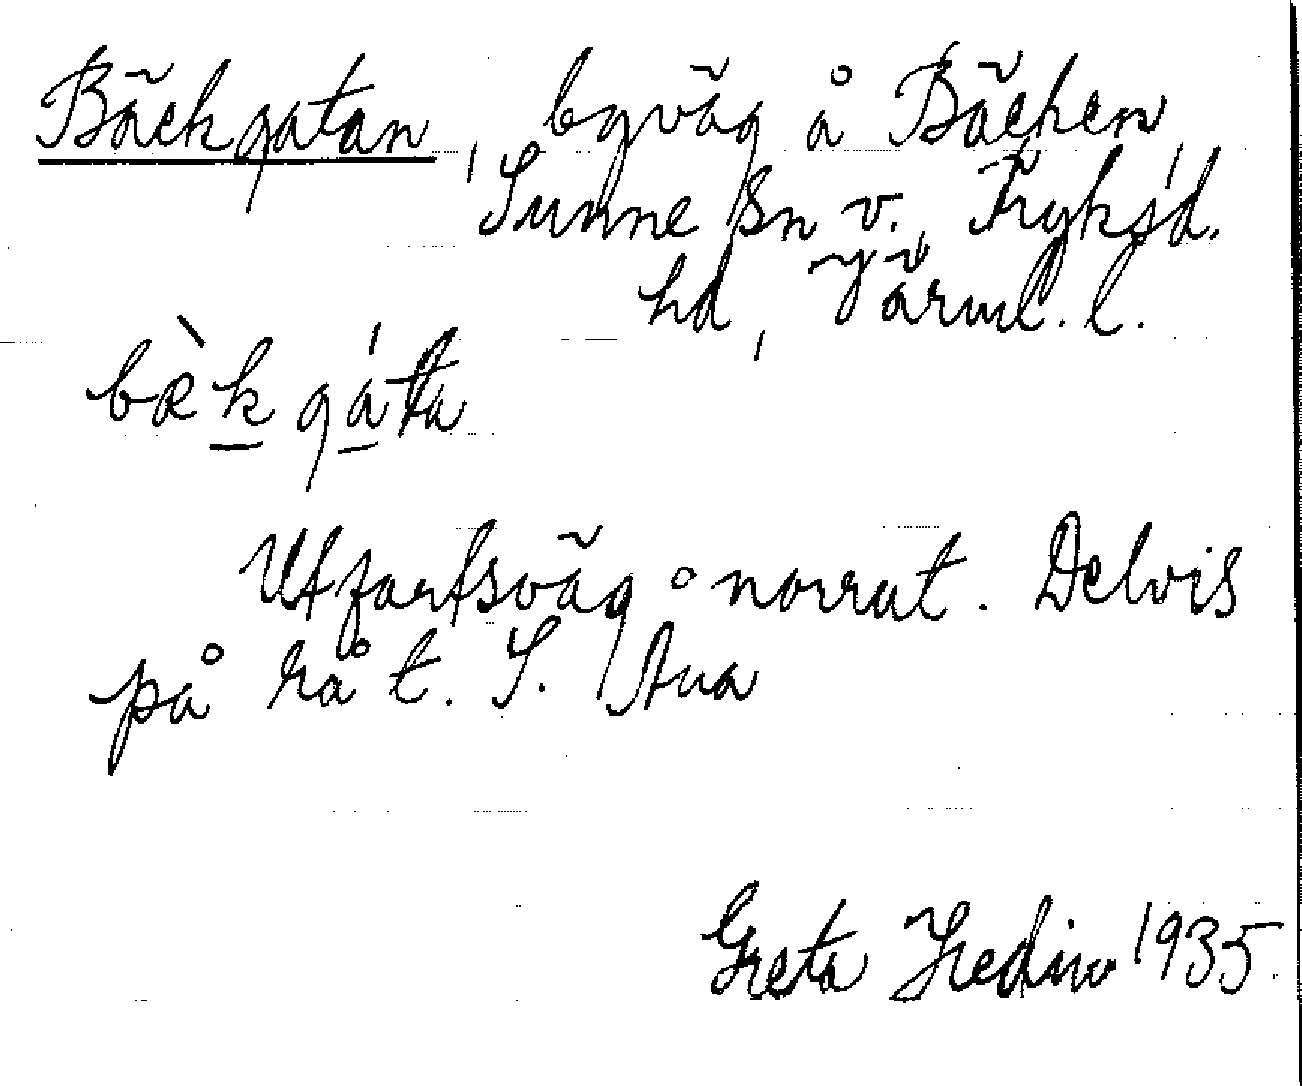 Bäckgatan, byväg å Bäcken,
Sunne sn v. Fryksd.
hd, Värml. l.
bæ̀k gáta
Utfartsväg norrut. Delvis
på rå t. S. Ava
Greta Hedin 1935.